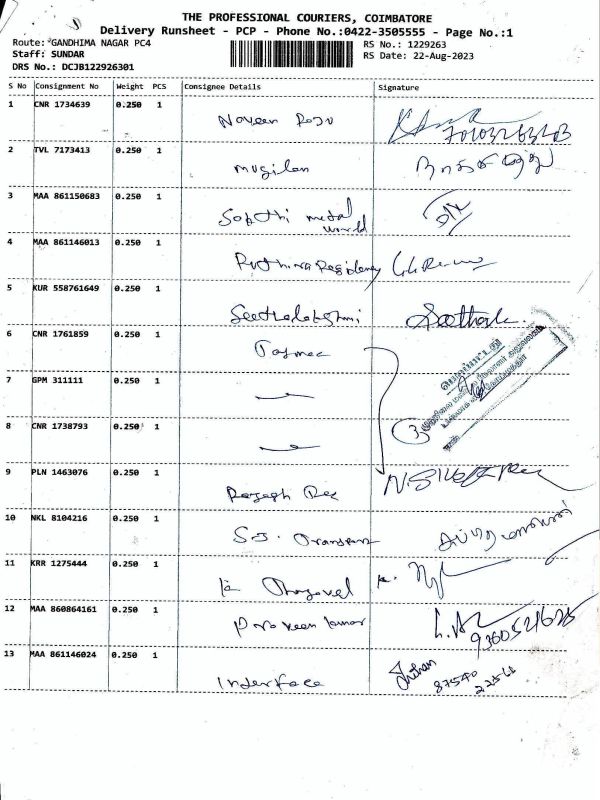 THE PROFESSIONAL COURIERS, COIMBATORE
Delivery Runsheet - PCP - Phone No.:0422-3505555 - Page No.:1
Route: GANDHIMA NAGAR PC4
Staff: SUNDAR
DRS No.: DCJB122926301
RS No.: 1229263
RS Date: 22-Aug-2023
S No Consignment No Weight PCS Consignee Details Signature
1 CNR 1734639 0.250 1
Naveen Raju
2 TVL 7173413 0.250 1
mugilan
3 MAA 861150683 0.250 1
Sakthi metal
world
4 MAA 861146013 0.250 1
Residency
5 KUR 558761649 0.250 1
Seethalakshmi
6 CNR 1761859 0.250 1
Tasmac
7 GPM 311111 0.250 1
8 CNR 1738793 0.250 1
3
9 PLN 1463076 0.250 1
10 NKL 8104216 0.250 1
11 KRR 1275444 0.250 1
K.
12 MAA 860864161 0.250 1
Praveen kumar
13 MAA 861146024 0.250 1
Interface
87540